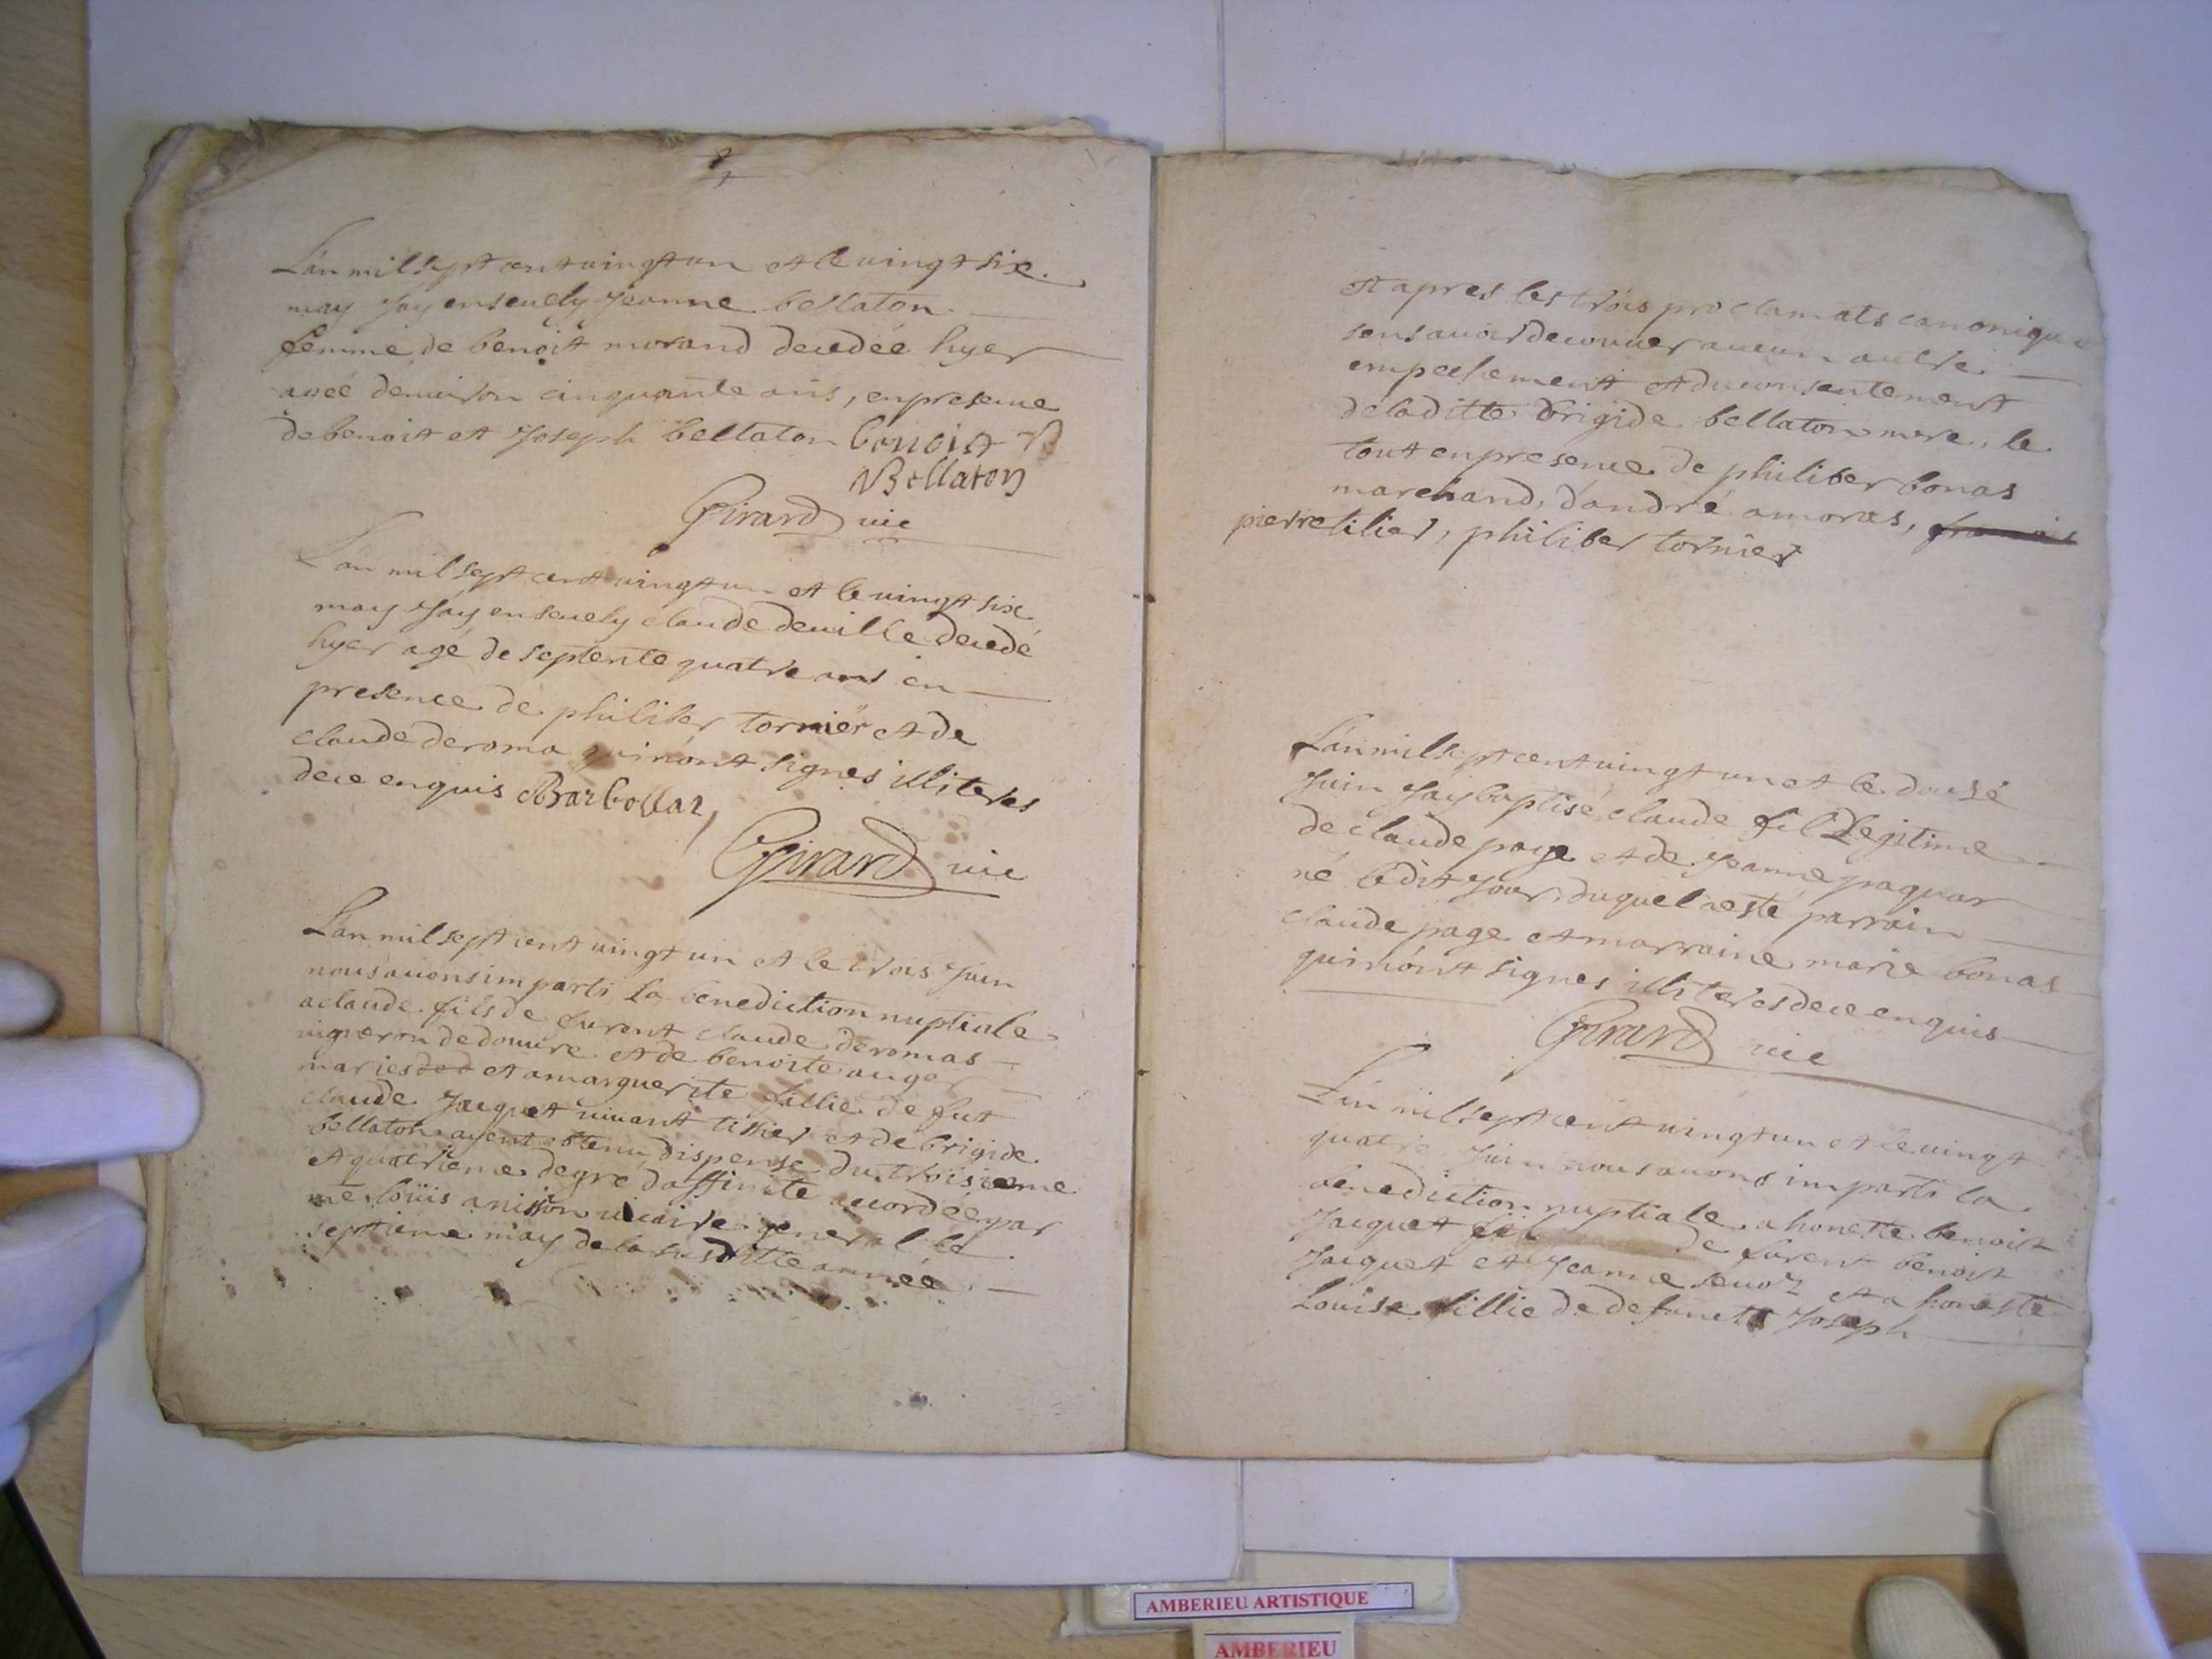 L'an mil sept cent vingt un et le vingt six
may j'ay enseuely jeanne bellaton
femme de benoit morand decedée hyer
agée d'enuiron cinquante ans, en presence
de benoit et joseph bellaton benoist
Bellaton
Girard vic
L'an mil sept cent vingt un et le vingt six
may j'ay enseuely claude deville decedé
hyer agé de septente quatre ans en
presence de philiber tornier et de
claude deroma qui n'ont signes illiteres
de ce enquis
Girard vic
L'an mil sept cent vingt un et le trois juin
nous auons imparti la benediction nuptiale
a claude fils de furent claude deromas
vigneron de douure et de benoite auger
maries et a marguerite fillie de fut
claude jacquet viuant tissier et de brigide
bellaton ayent obtenu dispense du troisieme
et quatrieme degré d'affinité accordée par
mre loüis anisson vicaire general le
septieme may de la susditte année
et apres les trois proclamats canonique
sens auoir decouuer aucun autre
empechement et du consentement
de laditte brigide bellaton mere, le
tout en presence de philiber bonas
marchand, d'andré amoras, francois
pierre tilier, philiber tornier
L'an mil sept cent vingt un et le dousé
juin j'ay baptisé claude fil legitime
de claude page et de jeanne paquar
né ledit jour, duquel a esté parrain
claude page et marraine marie bonas
qui n'ont signes illiteres de ce enquis
Girard vic
L'an mil sept cent vingt un et le vingt
quatre juin nous auons imparti la
benediction nuptiale a honeste benoist
jacquet fil de furent benoist
jacquet et jeanne seuoz et a honeste
Louise fillie de defunct joseph
AMBERIEU ARTISTIQUE
AMBERIEU